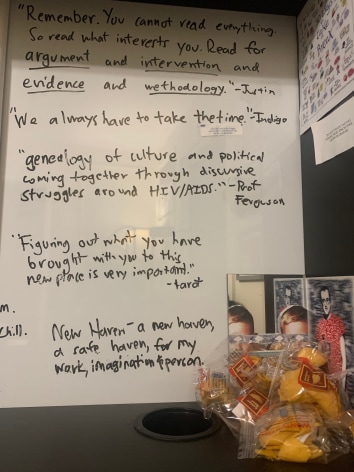 "Remember. You cannot read everything.
So read what interests you. Read for
argument and intervention and
evidence and methodology." -Justin
"We always have to take the time." -Indigo
"geneology of culture and political
coming together through discursive
struggles around HIV/AIDS." -Prof
Ferguson
"Figuring out what you have
brought with you to this
new place is very important."
-tarot
m.
Chill.
New Haven - a new haven,
a safe haven, for my
work, imagination & person.